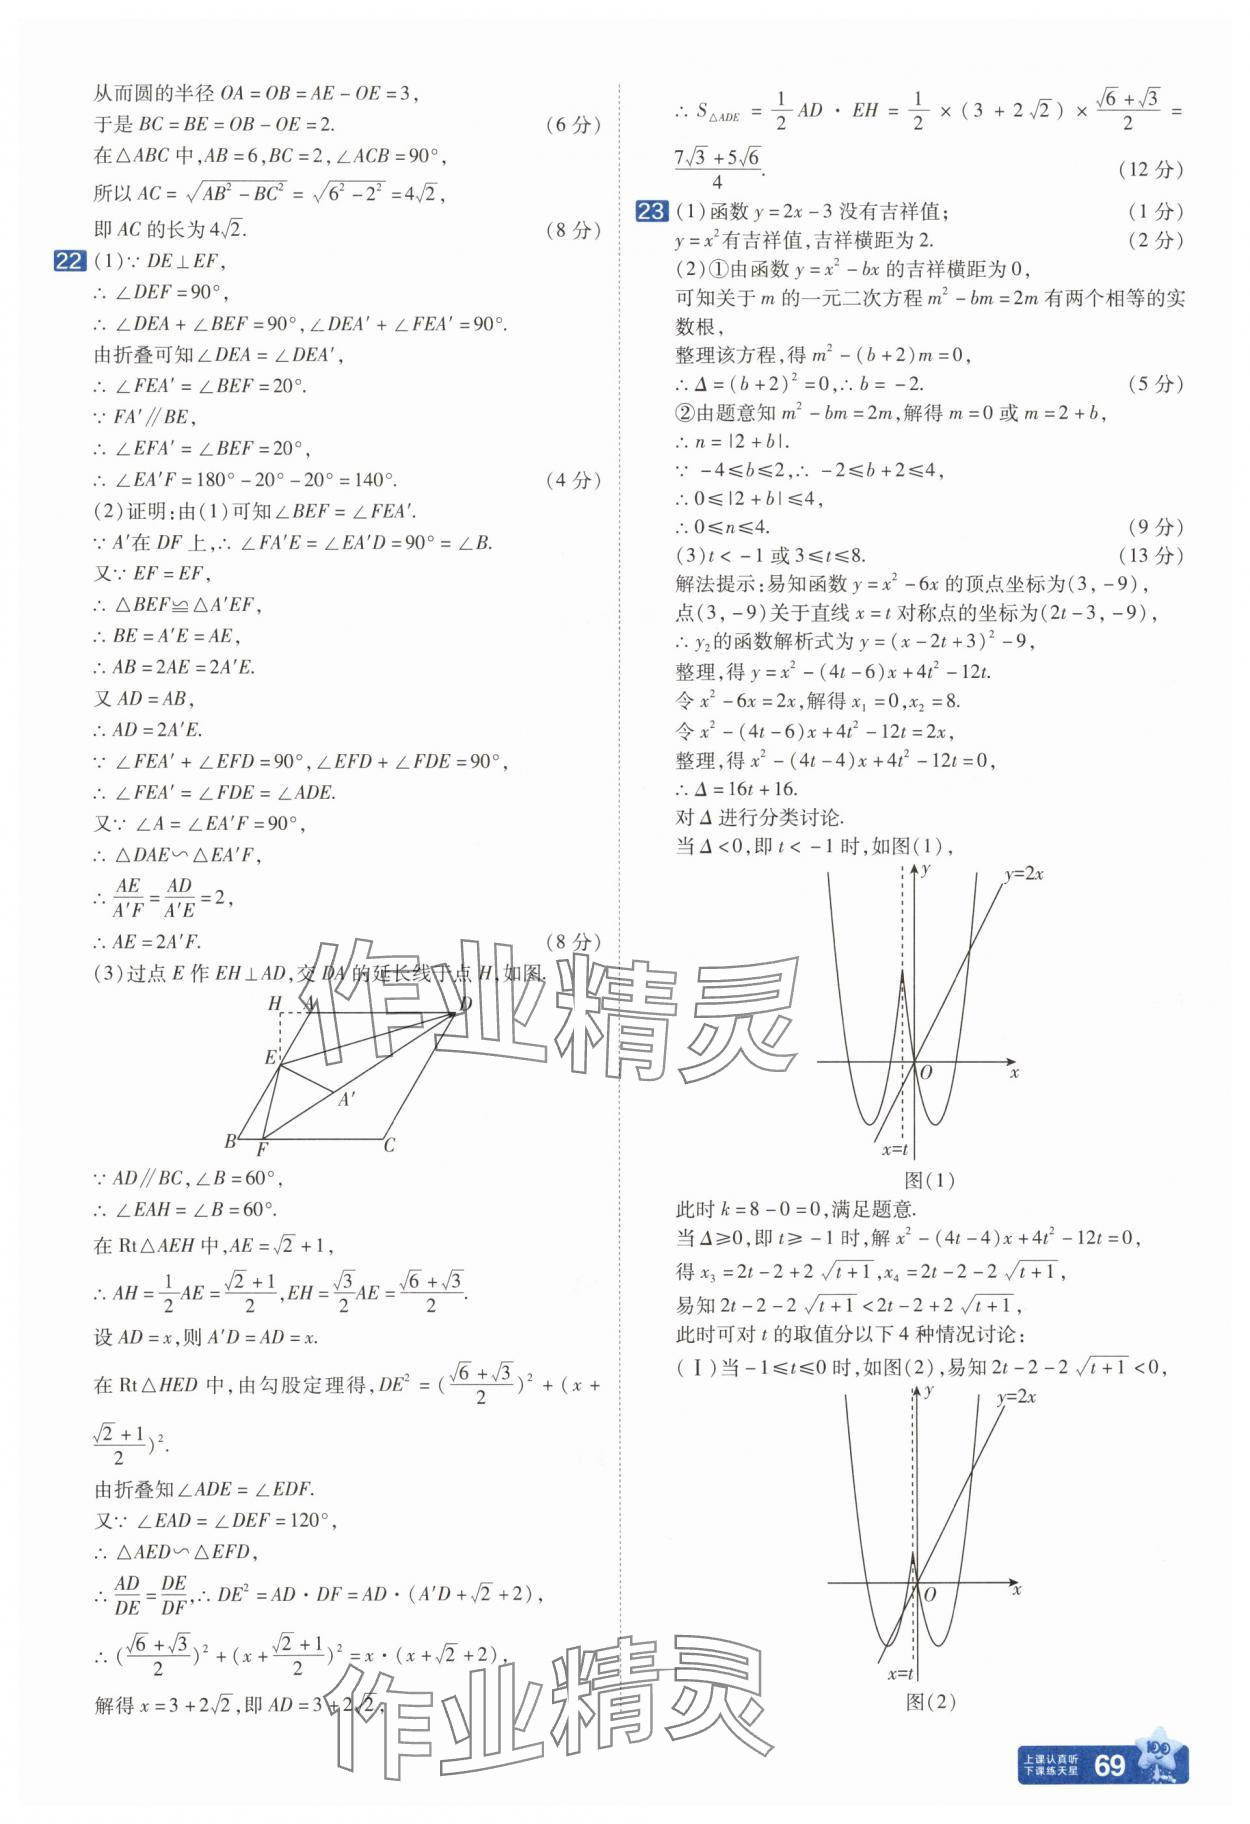 从而圆的半径 OA = OB = AE - OE = 3,
于是 BC = BE = OB - OE = 2. (6 分)
在△ABC 中, AB = 6, BC = 2, ∠ACB = 90°,
所以 AC = √(AB² - BC²) = √(6² - 2²) = 4√2,
即 AC 的长为 4√2. (8 分)
22 (1)∵ DE⊥EF,
∴ ∠DEF = 90°,
∴ ∠DEA + ∠BEF = 90°, ∠DEA′ + ∠FEA′ = 90°.
由折叠可知∠DEA = ∠DEA′,
∴ ∠FEA′ = ∠BEF = 20°.
∵ FA′∥BE,
∴ ∠EFA′ = ∠BEF = 20°,
∴ ∠EA′F = 180° - 20° - 20° = 140°. (4 分)
(2)证明:由(1)可知∠BEF = ∠FEA′.
∵ A′在 DF 上,∴ ∠FA′E = ∠EA′D = 90° = ∠B.
又∵ EF = EF,
∴ △BEF≌△A′EF,
∴ BE = A′E = AE,
∴ AB = 2AE = 2A′E.
又 AD = AB,
∴ AD = 2A′E.
∵ ∠FEA′ + ∠EFD = 90°, ∠EFD + ∠FDE = 90°,
∴ ∠FEA′ = ∠FDE = ∠ADE.
又∵ ∠A = ∠EA′F = 90°,
∴ △DAE∽△EA′F,
∴ AE/A′F = AD/A′E = 2,
∴ AE = 2A′F. (8 分)
(3)过点 E 作 EH⊥AD,交 DA 的延长线于点 H,如图.
H A D
E
A′
B F C
∵ AD∥BC, ∠B = 60°,
∴ ∠EAH = ∠B = 60°.
在 Rt△AEH 中, AE = √2 + 1,
∴ AH = 1/2 AE = (√2 + 1)/2, EH = √3/2 AE = (√6 + √3)/2.
设 AD = x,则 A′D = AD = x.
在 Rt△HED 中,由勾股定理得, DE² = ((√6 + √3)/2)² + (x +
(√2 + 1)/2)².
由折叠知∠ADE = ∠EDF.
又∵ ∠EAD = ∠DEF = 120°,
∴ △AED∽△EFD,
∴ AD/DE = DE/DF, ∴ DE² = AD · DF = AD · (A′D + √2 + 2),
∴ ((√6 + √3)/2)² + (x + (√2 + 1)/2)² = x · (x + √2 + 2),
解得 x = 3 + 2√2,即 AD = 3 + 2√2,
∴ S△ADE = 1/2 AD · EH = 1/2 × (3 + 2√2) × (√6 + √3)/2 =
(7√3 + 5√6)/4. (12 分)
23 (1)函数 y = 2x - 3 没有吉祥值; (1 分)
y = x² 有吉祥值,吉祥横距为 2. (2 分)
(2)①由函数 y = x² - bx 的吉祥横距为 0,
可知关于 m 的一元二次方程 m² - bm = 2m 有两个相等的实
数根,
整理该方程,得 m² - (b + 2)m = 0,
∴ Δ = (b + 2)² = 0,∴ b = -2. (5 分)
②由题意知 m² - bm = 2m,解得 m = 0 或 m = 2 + b,
∴ n = |2 + b|.
∵ -4≤b≤2,∴ -2≤b + 2≤4,
∴ 0≤|2 + b|≤4,
∴ 0≤n≤4. (9 分)
(3) t < -1 或 3≤t≤8. (13 分)
解法提示:易知函数 y = x² - 6x 的顶点坐标为(3, -9),
点(3, -9)关于直线 x = t 对称点的坐标为(2t - 3, -9),
∴ y₂的函数解析式为 y = (x - 2t + 3)² - 9,
整理,得 y = x² - (4t - 6)x + 4t² - 12t.
令 x² - 6x = 2x,解得 x₁ = 0, x₂ = 8.
令 x² - (4t - 6)x + 4t² - 12t = 2x,
整理,得 x² - (4t - 4)x + 4t² - 12t = 0,
∴ Δ = 16t + 16.
对 Δ 进行分类讨论.
当 Δ < 0,即 t < -1 时,如图(1),
y y=2x
O x
x=t
图(1)
此时 k = 8 - 0 = 0,满足题意.
当 Δ≥0,即 t≥ -1 时,解 x² - (4t - 4)x + 4t² - 12t = 0,
得 x₃ = 2t - 2 + 2√(t + 1), x₄ = 2t - 2 - 2√(t + 1),
易知 2t - 2 - 2√(t + 1) < 2t - 2 + 2√(t + 1),
此时可对 t 的取值分以下 4 种情况讨论:
(Ⅰ)当 -1≤t≤0 时,如图(2),易知 2t - 2 - 2√(t + 1) < 0,
y y=2x
O x
x=t
图(2)
作业精灵
作业精灵
上课认真听
下课练天星
69
100